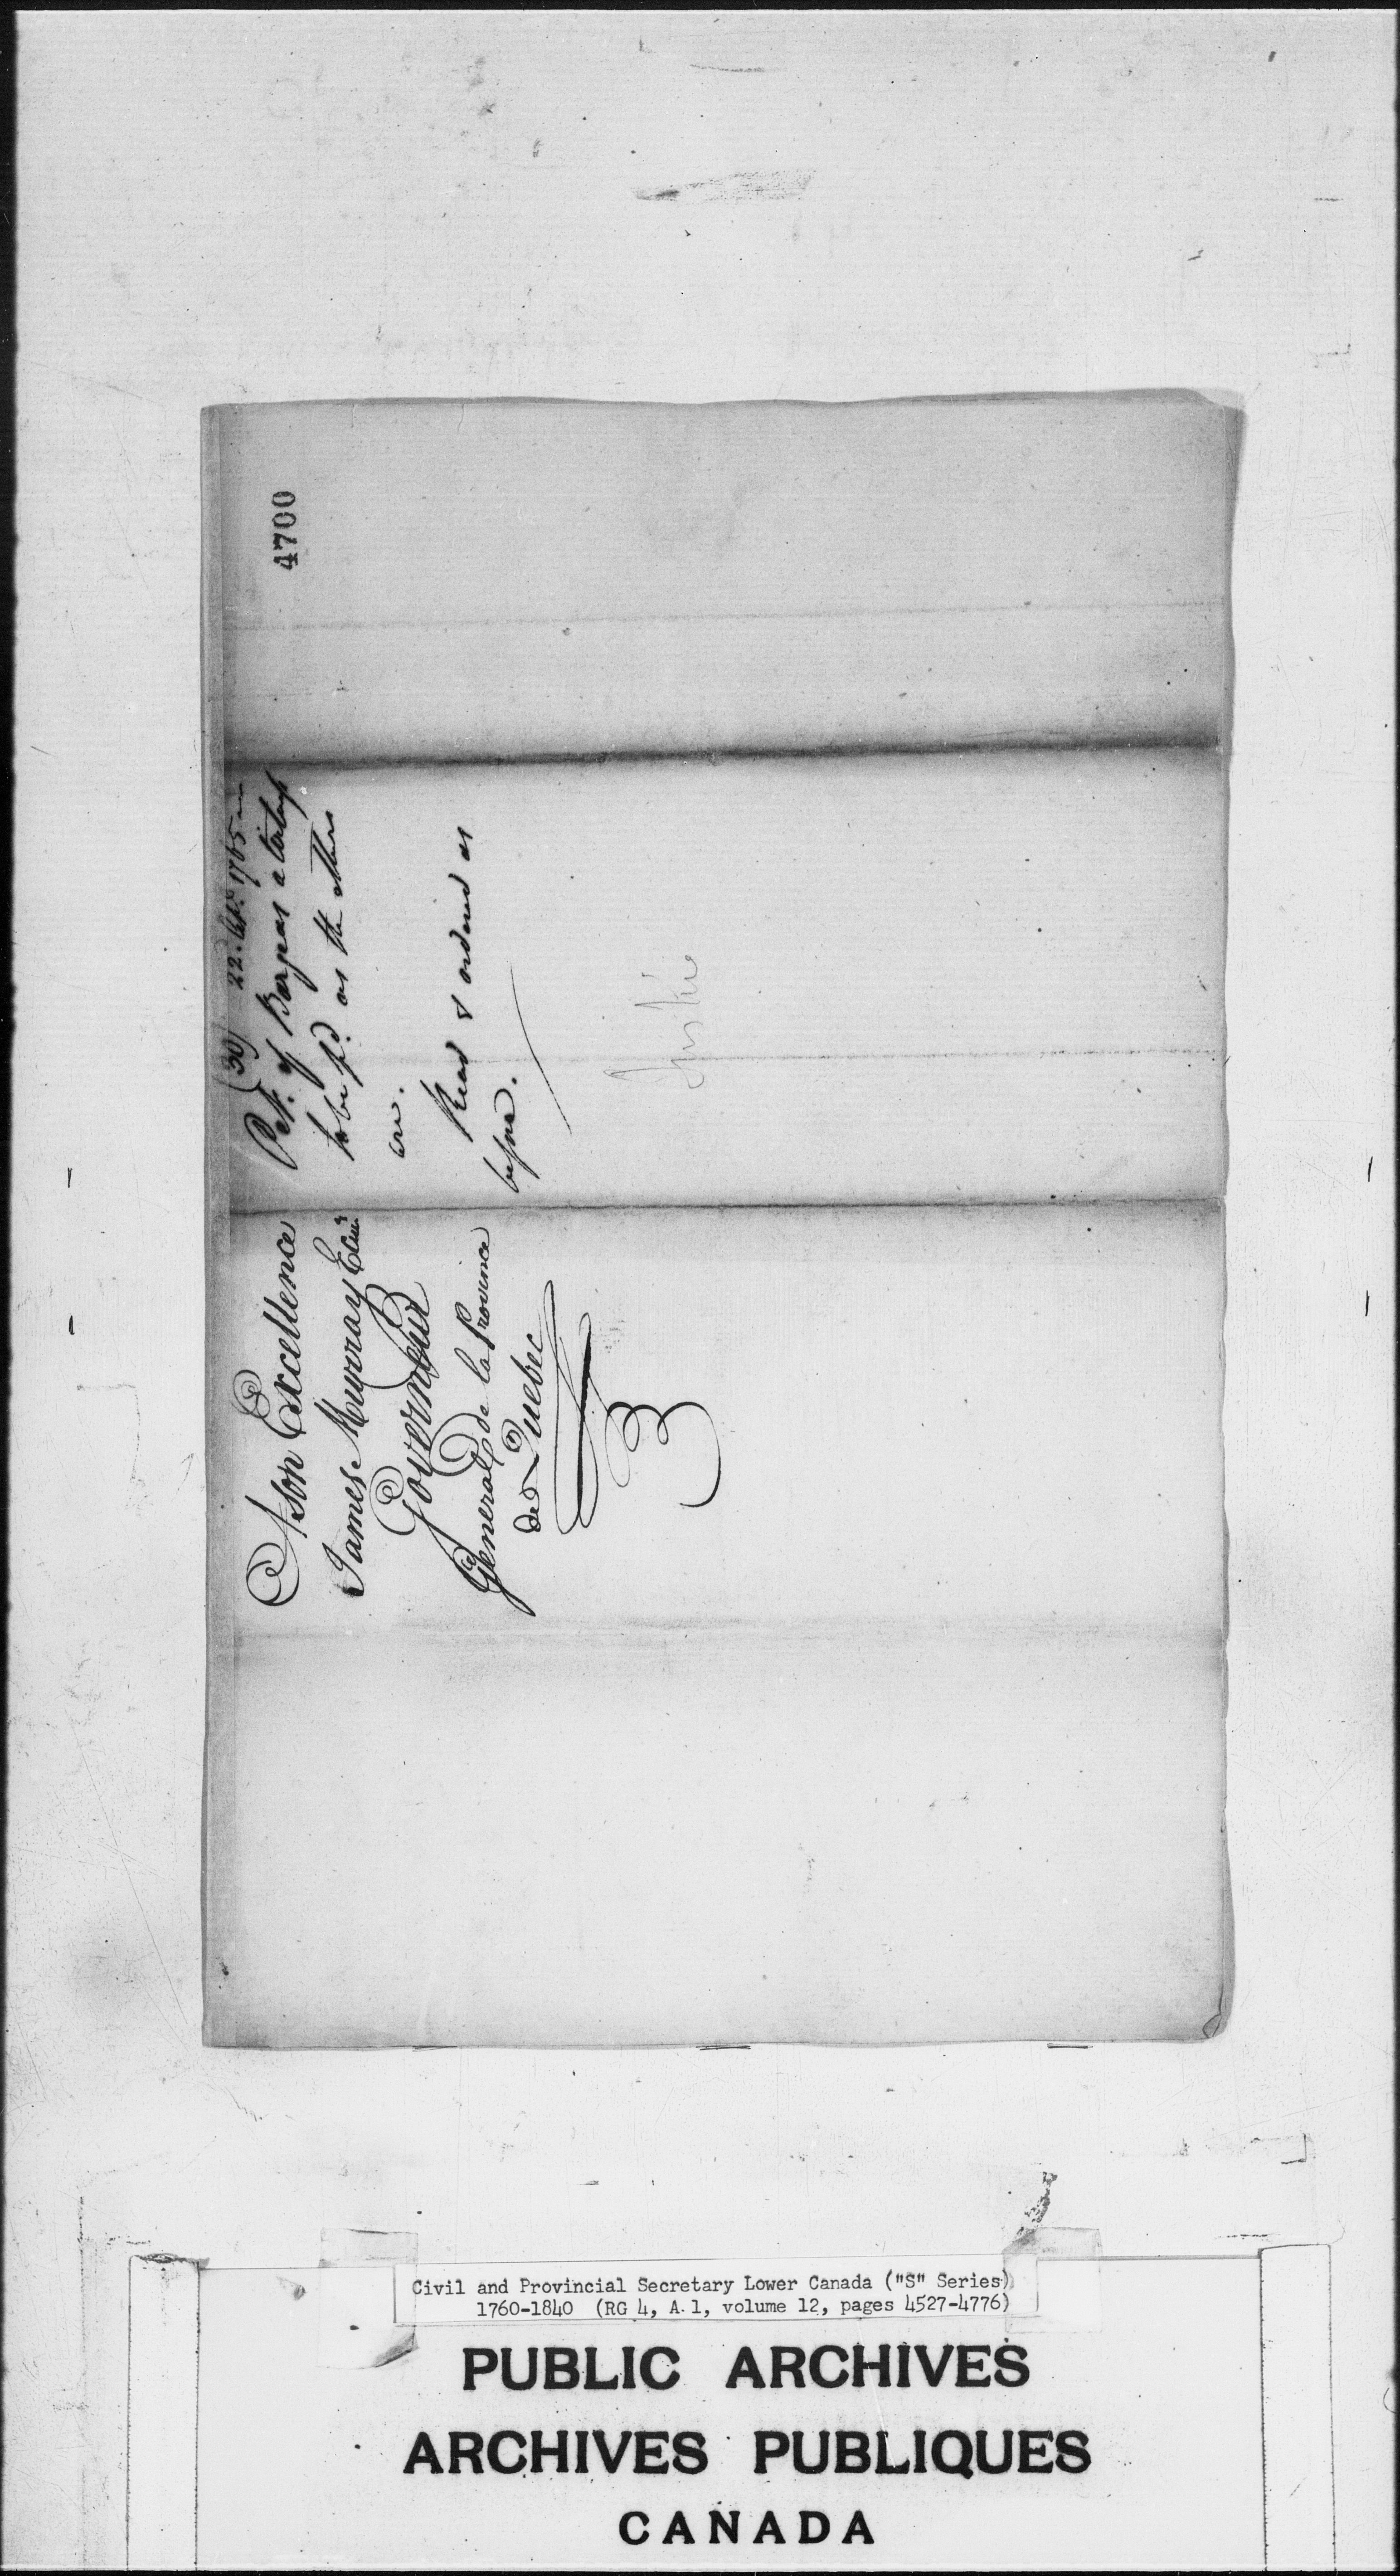 4700
(30) 22. 1765
Pet. of
to be pd. as the others
are.
Read & ordered as
before.
Justice
A son Excellence
James Murray Ecuier
Gouverneur
General de la Province
de Quebec
Civil and Provincial Secretary Lower Canada ("S" Series)
1760-1840 (RG 4, A.1, volume 12, pages 4527-4776)
PUBLIC ARCHIVES
ARCHIVES PUBLIQUES
CANADA